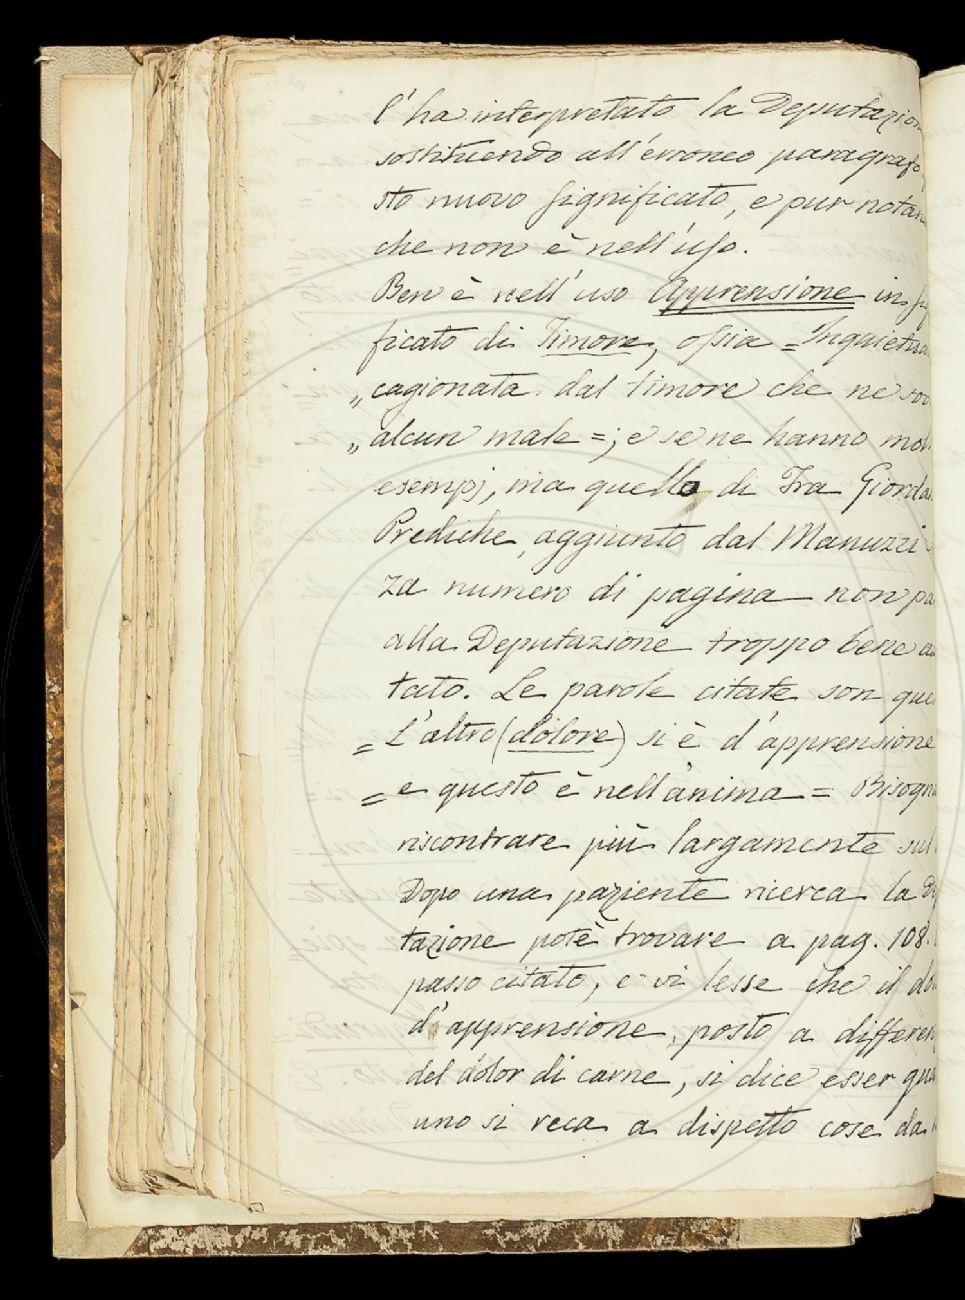 l'ha interpretato la Deputazion
sostituendo all'erroneo paragrafo
sto nuovo significato, e pur notan
che non è nell'uso.
Ben è nell'uso Apprensione in si
ficato di Timore, ossia = Inquietu
„ cagionata dal timore che ne so
„ alcun male =; e se ne hanno mol
esempj, ma quello di Fra Giorda
Prediche, aggiunto dal Manuzzi
za numero di pagina non pa
alla Deputazione troppo bene a
tato. Le parole citate son que
= L'altro (dolore) si è d'apprensione
= e questo è nell'anima = Bisogn
riscontrare più largamente sul
Dopo una paziente ricerca la De
tazione potè trovare a pag. 108.
passo citato, e vi lesse che il do
d'apprensione, posto a differen
del dolor di carne, si dice esser qua
uno si reca a dispetto cose da